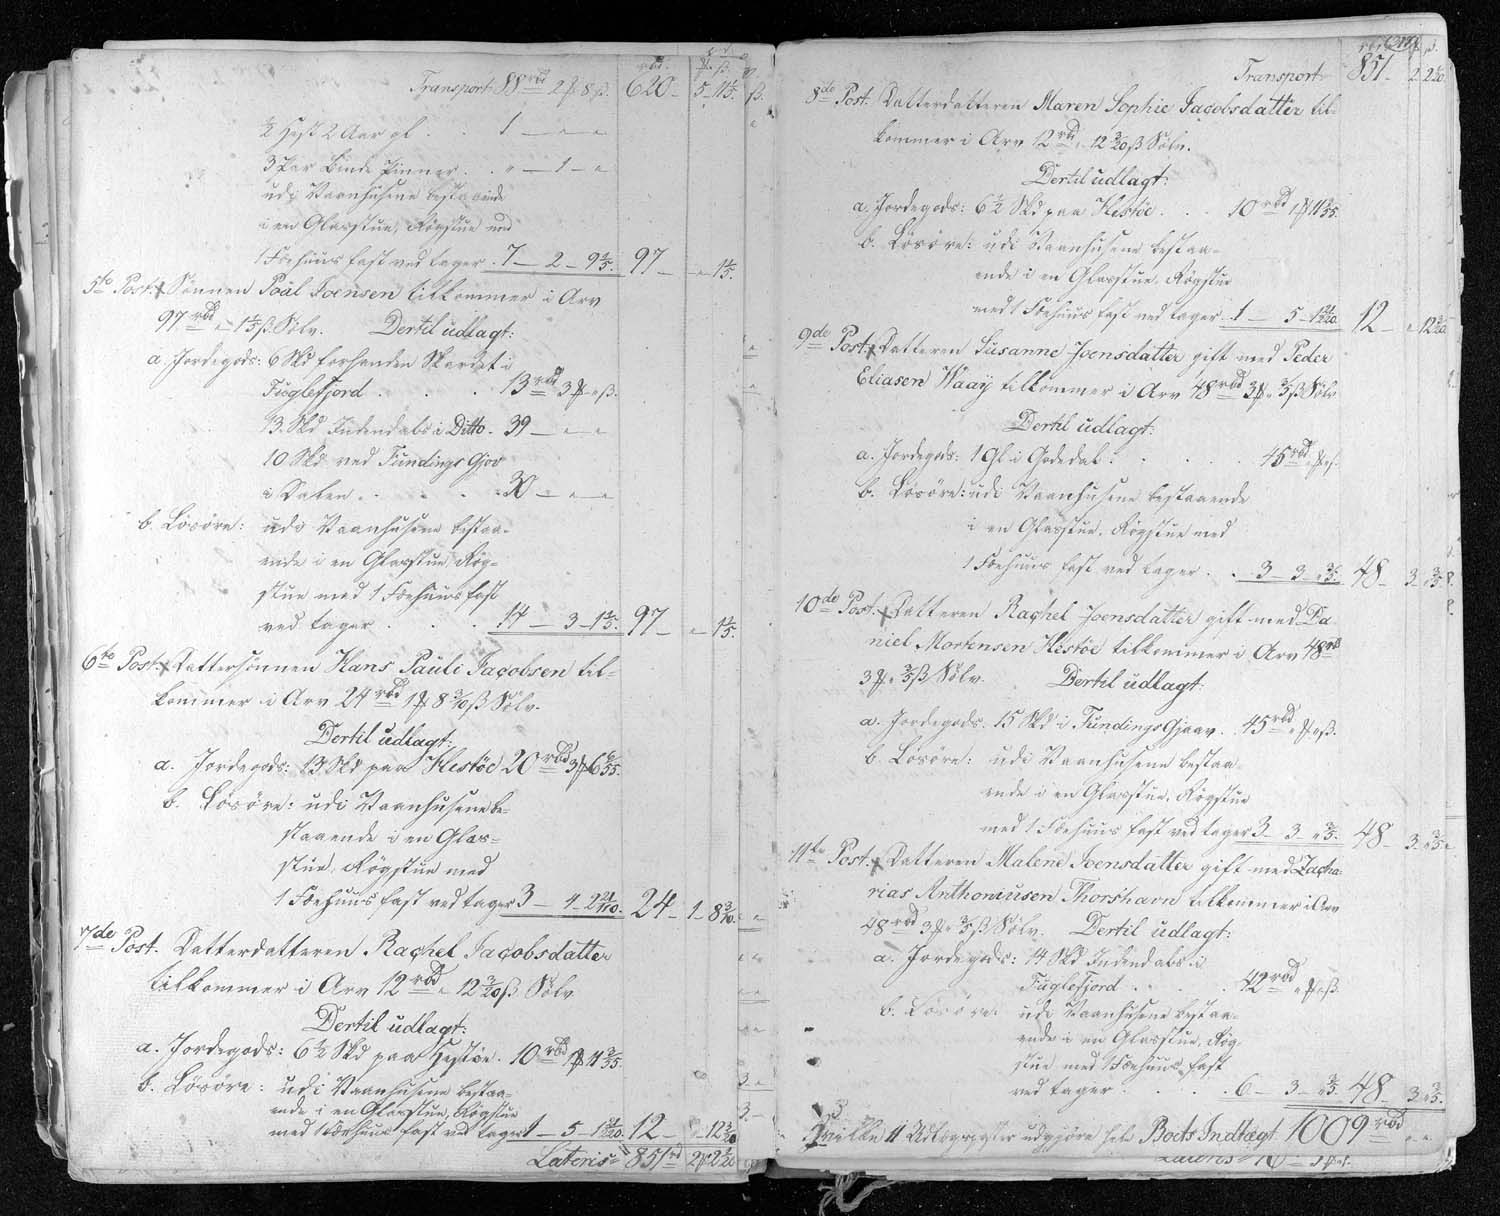 Transport 88 rbd 2 ℳ 8 ß. 620 - 5 - 11 4/5.
½ Hest 2 Aar gl . . 1 — „ — „
3 Par Binde Pinner . . „ — 1 — „
udi Vaanhusene bestaaende
i en Glasstue, Røgstue med
1 Fæhuus fast ved tager . 7 — 2 — 9 2/5. 97 — „ — 1 1/5.
5te Post. Sønnen Poul Joensen tilkommer i Arv
97 rbd „ 1 1/5 ß Sølv. Dertil udlagt:
a. Jordegods: 6 Skd forhenden Skardet i
Fuglefjord . . . 13 rbd 3 ℳ „ ß.
13 Skd Indendabs i Ditto . 39 — „ — „
10 Skd ved Fundings Gjov
i Dalen . . . . 30 — „ — „
b. Løsøre: udi Vaanhusene bestaa-
ende i en Glasstue, Røg-
stue med 1 Fæhuus fast
ved tager . . . 14 — 3 — 1 1/5. 97 — „ — 1 1/5.
6te Post. Dattersønnen Hans Pauli Jacobsen til-
kommer i Arv 24 rbd 1 ℳ 8 3/10 ß Sølv.
Dertil udlagt:
a. Jordegods: 13 Skd paa Hestøe 20 rbd 3 ℳ 6 6/55.
b. Løsøre: udi Vaanhusene be-
staaende i en Glas-
stue, Røgstue med
1 Fæhuus fast ved tager 3 — 4 — 2 21/110. 24 — 1 — 8 3/10.
7de Post. Datterdatteren Rachel Jacobsdatter
tilkommer i Arv 12 rbd „ 12 3/20 ß Sølv
Dertil udlagt:
a. Jordegods: 6 ½ Skd paa Hestøe . 10 rbd 1 ℳ 11 3/55.
b. Løsøre: udi Vaanhusene bestaa-
ende i en Glasstue, Røgstue
med 1 Fæhuus fast ved tager 1 — 5 — 1 21/220. 12 — „ — 12 3/20
Lateris 851 rd 2 ℳ 2 2/20
Transport 851 — 2 2 2/20.
8de Post. Datterdatteren Maren Sophie Jacobsdatter til-
kommer i Arv 12 rbd „ 12 3/20 ß Sølv.
Dertil udlagt:
a. Jordegods: 6 ½ Skd paa Hestøe . . . 10 rbd 1 ℳ 11 3/55.
b. Løsøre: udi Vaanhusene bestaa-
ende i en Glasstue, Røgstue
med 1 Fæhuus fast ved tager 1 — 5 — 1 21/220. 12 — „ 12 3/20
9de Post. Datteren Susanne Joensdatter gift med Peder
Eliasen Waaÿ tilkommer i Arv 48 rbd 3 ℳ „ 3/5 ß Sølv
Dertil udlagt:
a. Jordegods: 1 Gl i Godedal . . . . . 45 rbd „ ℳ „ ß.
b. Løsøre: udi Vaanhusene bestaaende
i en Glasstue, Røgstue med
1 Fæhuus fast ved tager . . 3 — 3 — „ 3/5. 48 — 3 — „ 3/5
10de Post. Datteren Rachel Joensdatter gift med Da-
niel Mortensen Hestøe tilkommer i Arv 48 rbd
3 ℳ „ 3/5 ß Sølv. Dertil udlagt:
a. Jordegods. 15 Skd i Fundings Gjaav . 45 rbd „ ℳ „ ß.
b. Løsøre: udi Vaanhusene bestaa-
ende i en Glasstue, Røgstue
med 1 Fæhuus fast ved tager 3 — 3 — „ 3/5. 48 — 3 — „ 3/5
11te Post. Datteren Malene Joensdatter gift med Zacha-
rias Anthoniusen Thorshavn tilkommer i Arv
48 rbd 3 ℳ „ 3/5 ß Sølv. Dertil udlagt:
a. Jordegods: 14 Skd Indendabs i
Fuglefjord . . . . 42 rbd „ ℳ „ ß.
b. Løsøre: udi Vaanhusene bestaa-
ende i en Glasstue, Røg-
stue med 1 Fæhuus fast
ved tager . . . . 6 — 3 — „ 3/5 48 — 3 3/5.
Hvilke 11 Udlægsposter udgjøre hele Boets Indtægt 1009 rbd „ „